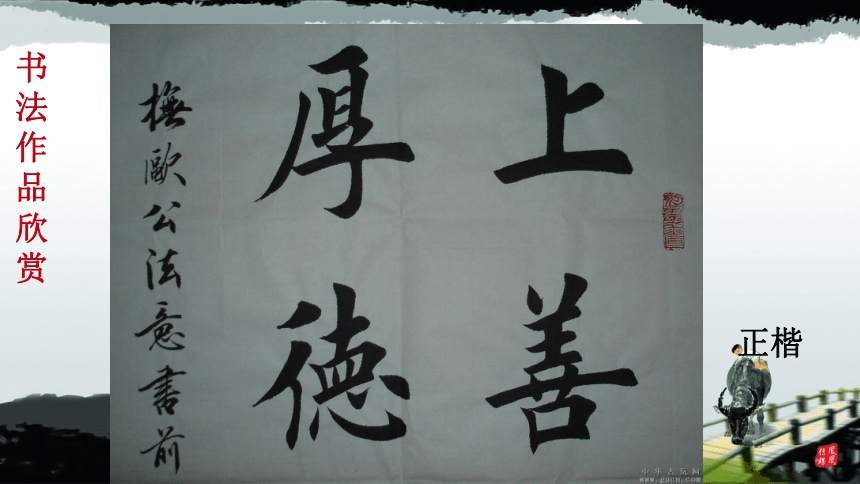 书法作品欣赏
上善
厚德
撫歐公法意書前
正楷
中华古玩网
www.gucn.com